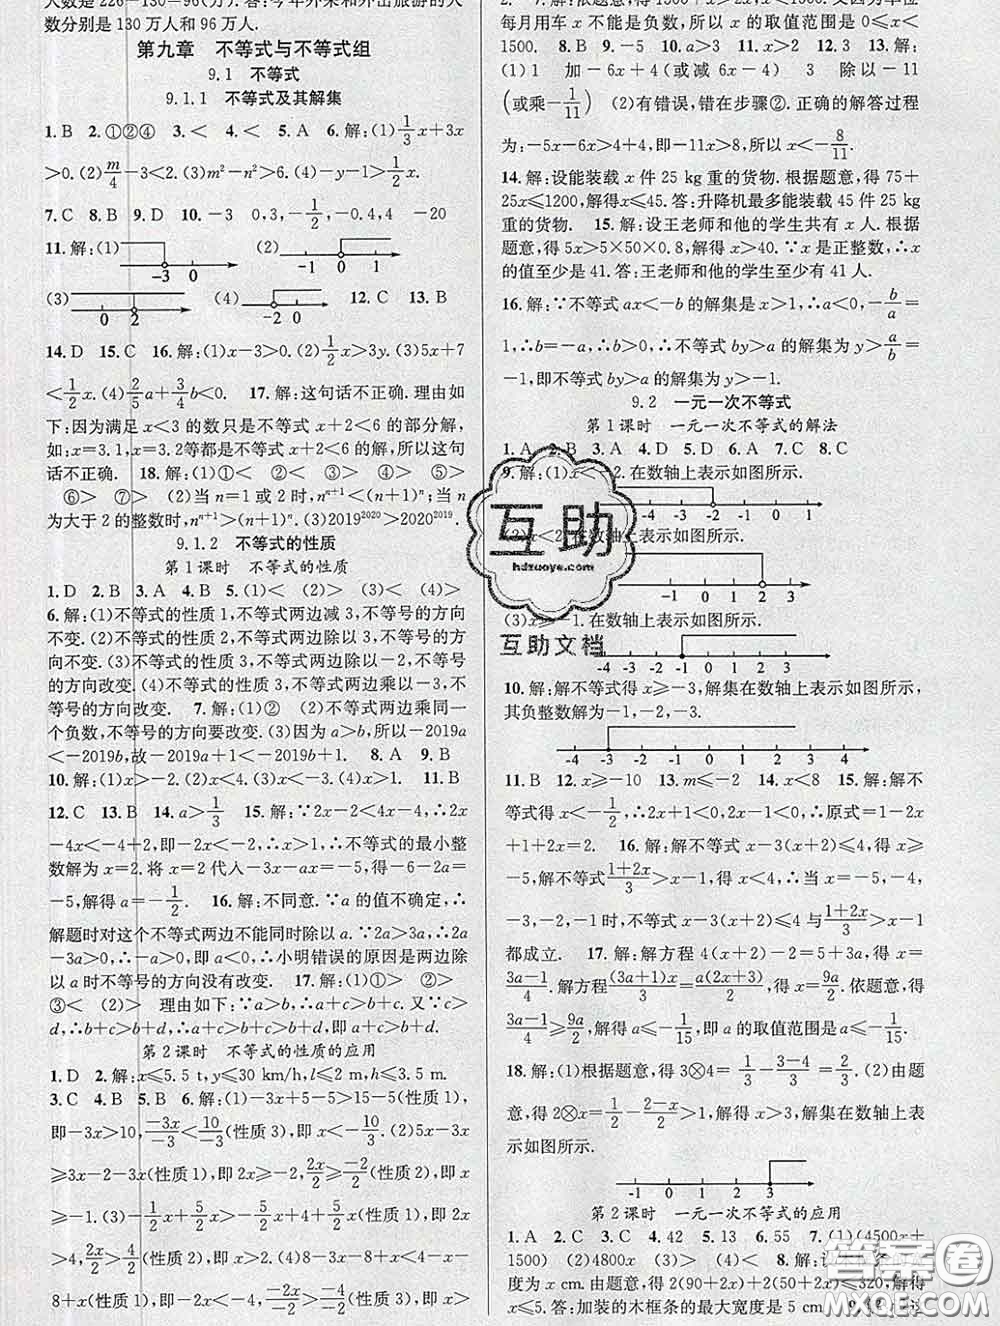 人数是 226-130=96(万). 答:今年外来和外出旅游的人
数分别是 130 万人和 96 万人.
第九章 不等式与不等式组
9.1 不等式
9.1.1 不等式及其解集
1. B 2. ①②④ 3. < 4. < 5. A 6. 解:(1)1/3x+3x
>0. (2)m/4-3<2. (3)m²-n²>6. (4)-y-1>1/2x.
7. C 8. B 9. D 10. -3 0,3,-1/2,-√3,4 -20
11. 解:(1) -3 0 (2) -1 0 1
(3) 0 2 (4) -2 0 12. C 13. B
14. D 15. C 16. 解:(1)x-3>0. (2)1/2x>3y. (3)5x+7
<1/2x. (4)2/5a+3/4b<0. 17. 解:这句话不正确. 理由如
下:因为满足 x<3 的数只是不等式 x+2<6 的部分解,
如:x=3.1,x=3.2等都是不等式 x+2<6 的解,所以这句
话不正确. 18. 解:(1)①< ②< ③> ④> ⑤>
⑥> ⑦> (2)当 n=1 或 2 时,nⁿ⁺¹<(n+1)ⁿ;当 n
为大于 2 的整数时,nⁿ⁺¹>(n+1)ⁿ. (3)2019²⁰²⁰>2020²⁰¹⁹.
9.1.2 不等式的性质
第 1 课时 不等式的性质
1. D 2. B 3. A 4. B 5. (1)< (2)> (3)< (4)>
6. 解:(1)不等式的性质 1,不等式两边减 3,不等号的方向
不变. (2)不等式的性质 2,不等式两边除以 3,不等号的方向
不变. (3)不等式的性质 3,不等式两边除以-2,不等号
的方向改变. (4)不等式的性质 3,不等式两边乘以-2,不
等号的方向改变. 7. 解:(1)② (2)不等式两边乘同一
个负数,不等号的方向要改变. (3)因为 a>b,所以-2019a
<-2019b,故-2019a+1<-2019b+1. 8. A 9. B
10. 解:(1)x>-2. (2)x<4. (3)x<-3. (4)x>4. 11. B
12. C 13. B 14. a>1/3 15. 解:∵2x-2<4x-4,∴2x
-4x<-4+2,即-2x<-2,∴x>1,∴不等式的最小整
数解为 x=2. 将 x=2 代入-3x-ax=-5,得-6-2a=
-5,解得 a=-1/2. 16. 解:不同意. ∵a 的值不确定,∴
解题时对这个不等式两边不能同时除以 a. ∵2a>3a,∴
2a-3a>0,∴-a>0,即 a<0,∴小明错误的原因是两边
以 a 时不等号的方向没有改变. 17. 解:(1)①> ②>
③< (2)> 理由如下:∵a>b,∴a+c>b+c. 又∵c>
d,∴b+c>b+d,∴a+c>b+d,即 a+c>b+d.
第 2 课时 不等式的性质的应用
1. D 2. 解:x⩽5.5 t,y⩽30 km/h,l⩽2 m,h⩽3.5 m.
3. C 4. B 5. B 6. 解:(1)-3x+5-5>15-5(性质1),
即-3x>10,-3x/-3<10/-3(性质 3),即 x<-10/3. (2)5x-3x
⩾3x-2-3x(性质 1),即 2x⩾-2,2x/2⩾-2/2(性质 2),即 x
⩾-1. (3)-1/2x+5/2x>-5/2x+4+5/2x(性质 1),即 2x
>4,2x/2>4/2(性质 2),即 x>2. (4)8-3x-8+x<4-x-
8+x(性质 1),即-2x<-4,
2. 7. 解:依题意,得 2x⩽3000,解得 x⩽1500. 又因为单位
每月用车 x 不能是负数,所以 x 的取值范围是 0⩽x⩽
1500. 8. B 9. -5 10. x>3 11. a<2 12. 3 13. 解:
(1)1 加-6x+4(或减 6x-4) 3 除以-11
(或乘-1/11) (2)有错误,错在步骤②. 正确的解答过程
为:-5x-6x>4+4,即-11x>8,所以 x<-8/11.
14. 解:设能装载 x 件 25 kg 重的货物. 根据题意,得 75+
25x⩽1200,解得 x⩽45. 答:升降机最多能装载 45 件 25 kg
重的货物. 15. 解:设王老师和他的学生共有 x 人. 根据
题意,得 5x>5×50×0.8,解得 x>40. ∵x 是正整数,∴x
的值至少是 41. 答:王老师和他的学生至少有 41 人.
16. 解:∵不等式 ax<-b 的解集是 x>1,∴a<0,-b/a=
1,∴b=-a,∴b>0,∴不等式 by>a 的解集为 y>a/b=
-1,即不等式 by>a 的解集为 y>-1.
9.2 一元一次不等式
第 1 课时 一元一次不等式的解法
1. A 2. B 3. A 4. D 5. D 6. B 7. C 8. C
9. 解:(1)x<-2. 在数轴上表示如图所示.
-4 -3 -2 -1 0 1
(2)x<2. 在数轴上表示如图所示.
-1 0 1 2 3
(3)x⩾-1. 在数轴上表示如图所示.
-4 -3 -2 -1 0 1 2 3 4
10. 解:解不等式得 x⩾-3,解集在数轴上表示如图所示,
其负整数解为-1,-2,-3.
-4 -3 -2 -1 0 1 2 3 4
11. B 12. x⩾-10 13. m⩽-2 14. x<8 15. 解:解不
等式得 x<-1/2,∴2x+1<0,2x-1<0,∴原式=1-2x
+1+2x=2. 16. 解:解不等式 x-3(x+2)⩽4,得 x⩾
-5. 解不等式(1+2x)/3>x-1,得 x<4,∴当 x=-5,-4,
-3,-2,-1时,不等式 x-3(x+2)⩽4 与(1+2x)/3>x-1
都成立. 17. 解:解方程 4(x+2)-2=5+3a,得 x=
(3a-1)/4. 解方程(3a+1)x/3=a(2x+3)/2,得 x=9a/2. 依题意,得
(3a-1)/4⩾9a/2,解得 a⩽-1/15,即 a 的取值范围是 a⩽-1/15.
18. 解:(1)根据题意,得 3⊗4=1/3-(3-4)/2=5/6. (2)由题
意,得 2⊗x=1/2-(2-x)/2⩾1,解得 x⩾3. 解集在数轴上表
示如图所示.
-1 0 1 2 3
第 2 课时 一元一次不等式的应用
1. A 2. C 3. C 4. 42 5. 13 6. 55 7. (1)(4500x+
1500) (2)4800x (3)> (4)< 8. 解:设
度为 x cm. 由题意,得 2(90+2x)+2(50+2x)⩽320,解得
x⩽5. 答:加装的木框条的最大宽度是 5 cm.
互助
hdzuoye.com
互助文档
答案卷